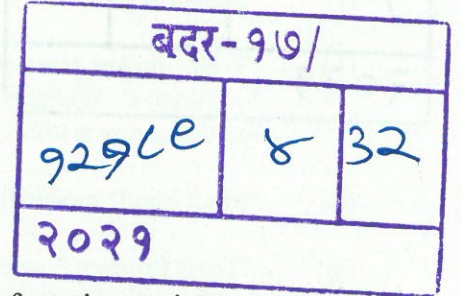 बदर-१७/
१२१८९ ४ ३२
२०२१